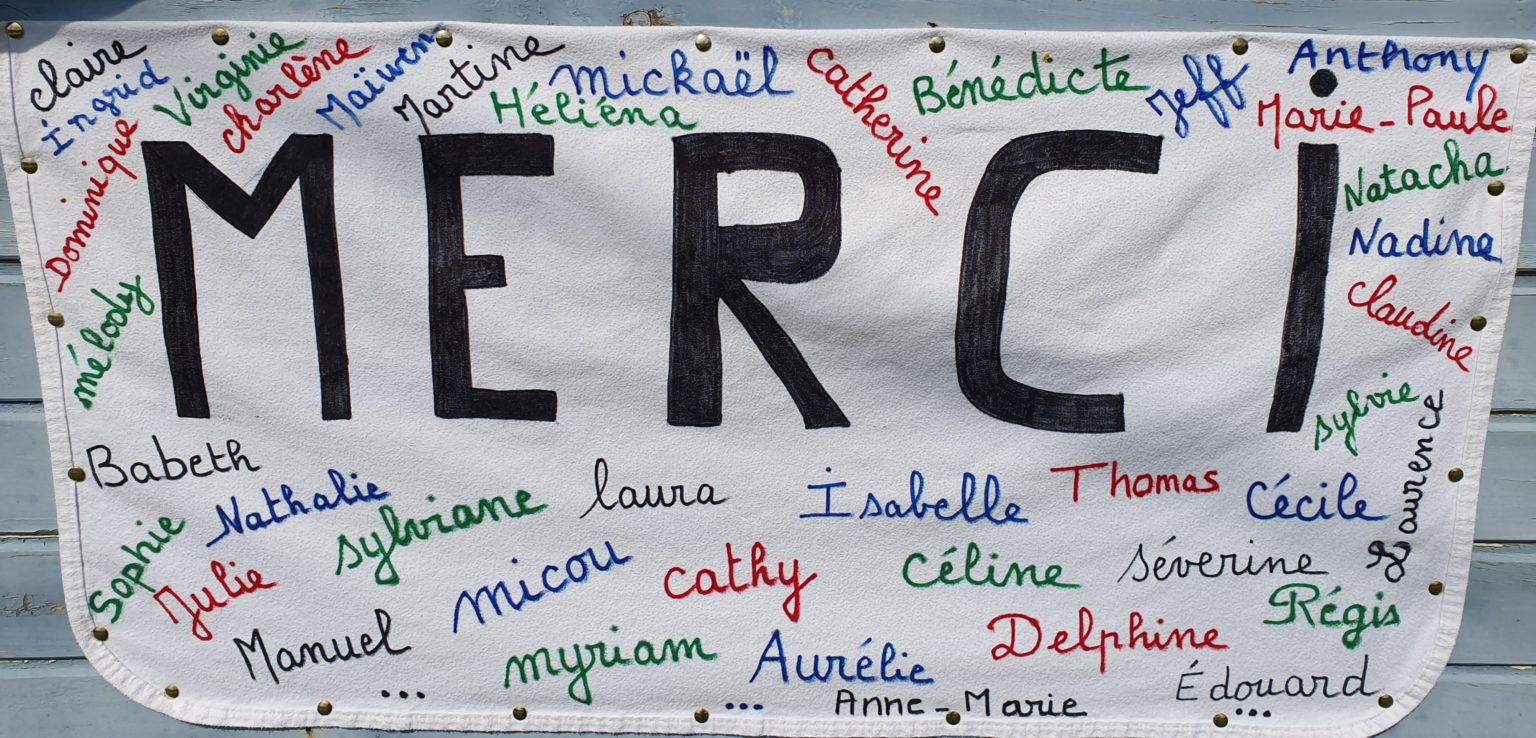 claire
Ingrid
Virginie
charlène
Maïwen
Martine
Héliéna
mickaël
catherine
Bénédicte
Jeff
Anthony
Marie-Paule
Dominique
MERCI
Natacha
Nadine
claudine
mélody
sylvie
Laurence
Babeth
Nathalie
sylviane
laura
Isabelle
Thomas
Cécile
Sophie
Julie
micou
cathy
céline
séverine
Régis
Manuel
...
myriam
Aurélie
Delphine
...
Anne-Marie
Édouard
...